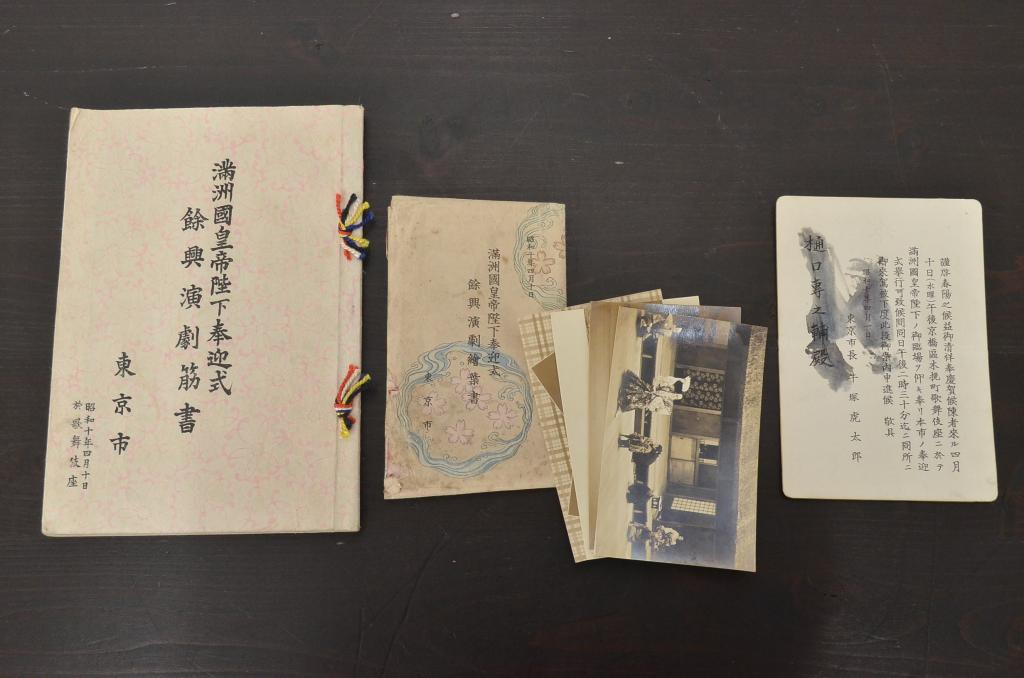 滿洲國皇帝陛下奉迎式
餘興演劇筋書
東京市
昭和十年四月十日
於歌舞伎座
昭和十年四月十日
滿洲國皇帝陛下奉迎式
餘興演劇繪葉書
東京市
謹啓春陽之候益御清祥奉慶賀候陳者來ル四月
十日(水曜)午後京橋區木挽町歌舞伎座ニ於テ
滿洲國皇帝陛下ノ御臨場ヲ仰キ奉リ本市ノ奉迎
式擧行可致候間同日午後二時三十分迄ニ同所ニ
御來駕被下度此段御案内申進候 敬具
昭和十年四月一日
東京市長 牛塚虎太郎
樋口專之輔殿